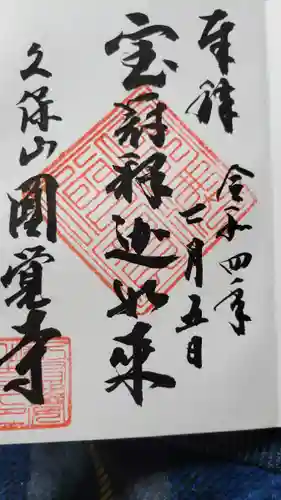 奉拝
令和四年
二月五日
宝冠釋迦如来
久保山
圓覚寺